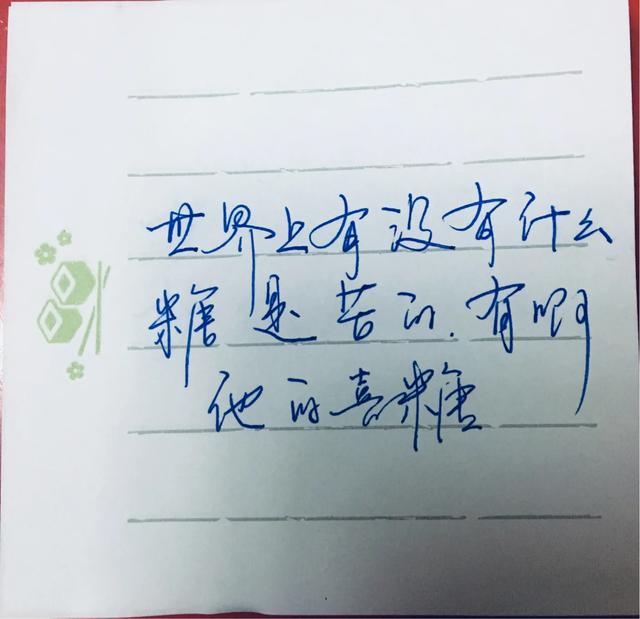 世界上有没有什么
糖是苦的.有啊
他的喜糖